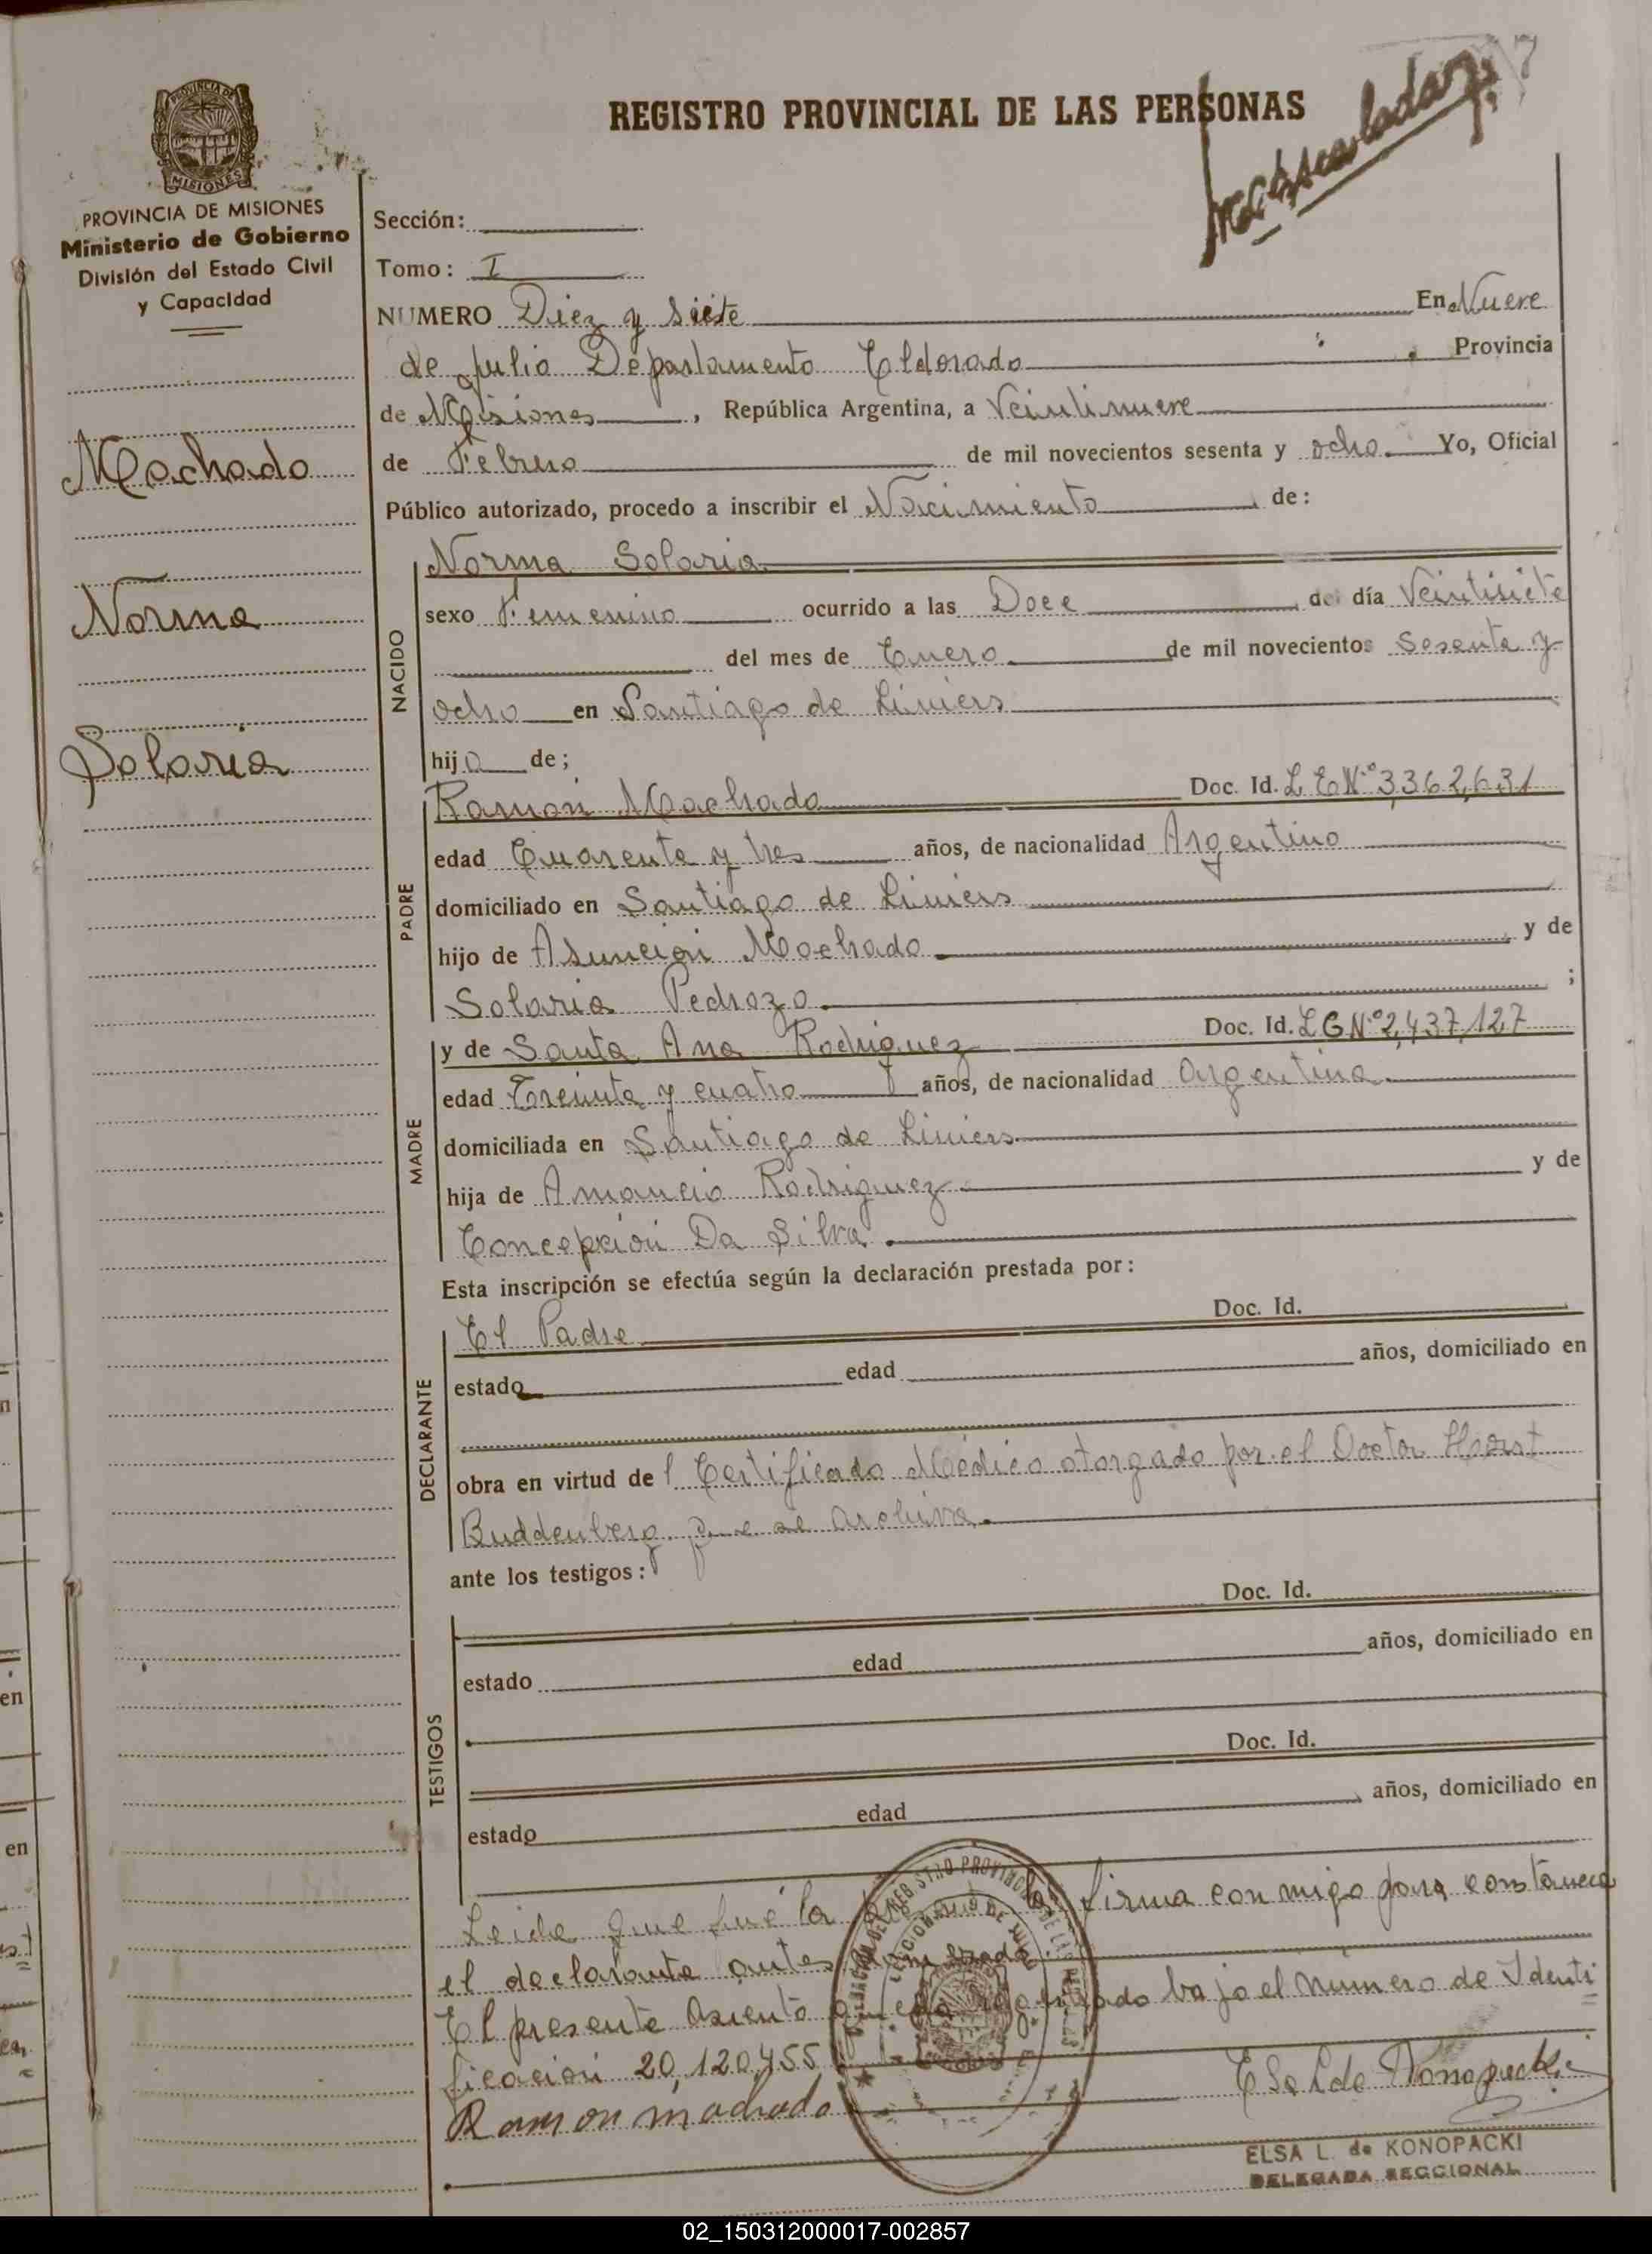 7
REGISTRO PROVINCIAL DE LAS PERSONAS
PROVINCIA DE
MISIONES
PROVINCIA DE MISIONES
Ministerio de Gobierno
División del Estado Civil
y Capacidad
Machado
Norma
Solaria
Sección:
Tomo: I
NUMERO Diez y siete En Nueve
de Julio Departamento Eldorado Provincia
de Misiones, República Argentina, a Veintinueve
de Febrero de mil novecientos sesenta y ocho. Yo, Oficial
Público autorizado, procedo a inscribir el Nacimiento de:
NACIDO
Norma Solaria
sexo Femenino ocurrido a las Doce del día Veintisiete
del mes de Enero de mil novecientos Sesenta y
ocho en Santiago de Liniers
hija de;
PADRE
Ramón Machado Doc. Id. L E Nº 3,362,631
edad Cuarenta y tres años, de nacionalidad Argentino
domiciliado en Santiago de Liniers
hijo de Asunción Machado y de
Solaria Pedrozo ;
MADRE
y de Santa Ana Rodriguez Doc. Id. L C Nº 2,437,127
edad Treinta y cuatro años, de nacionalidad Argentina
domiciliada en Santiago de Liniers
hija de Amancio Rodriguez y de
Concepción Da Silva
Esta inscripción se efectúa según la declaración prestada por:
DECLARANTE
El Padre Doc. Id.
estado edad años, domiciliado en
obra en virtud del Certificado Médico otorgado por el Doctor Horst
Buddenberg que se archiva.
ante los testigos:
TESTIGOS
Doc. Id.
estado edad años, domiciliado en
Doc. Id.
estado edad años, domiciliado en
Leida que fué la firma conmigo para constancia
el declarante antes nombrado.
El presente asiento queda registrado bajo el número de Identi
ficación 20,120,455
Ramon machado
ELSA L. de KONOPACKI
DELEGADA SECCIONAL
02_150312000017-002857